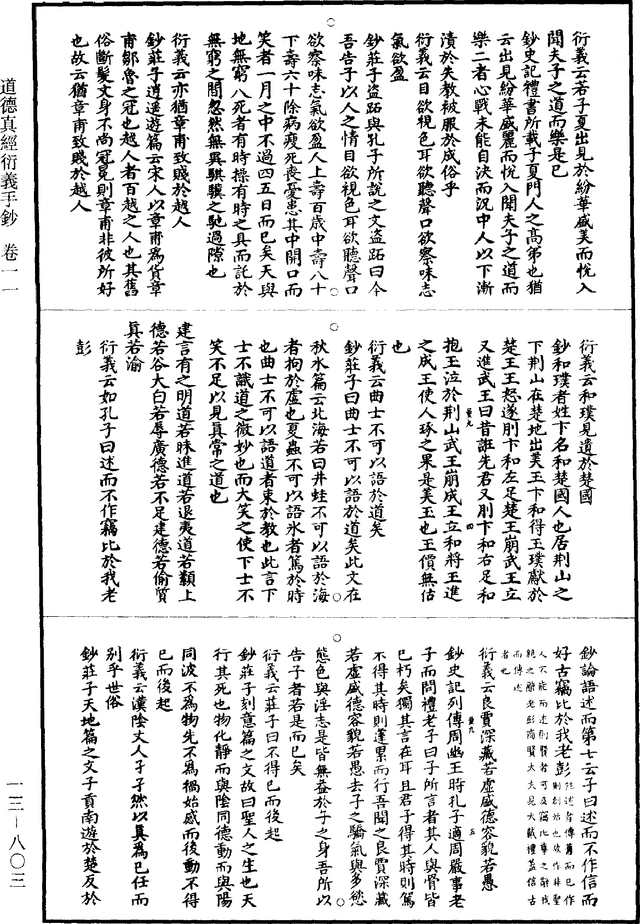 道德真經衍義手鈔　卷一一
一三—八〇三
衍義云若子夏出見於紛華盛美而悅入
聞夫子之道而樂是已
鈔史記禮書所載子夏門人之高弟也猶
云出見紛華盛麗而悅入聞夫子之道而
樂二者心戰未能自決而況中人以下漸
漬於失教被服於成俗乎
衍義云目欲視色耳欲聽聲口欲察味志
氣欲盈
鈔莊子盜跖與孔子所說之文盜跖曰今
吾告子以人之情目欲視色耳欲聽聲口
欲察味志氣欲盈人上壽百歲中壽八十
下壽六十除病瘦死喪憂患其中開口而
笑者一月之中不過四五日而已矣天與
地無窮人死者有時操有時之具而託於
無窮之間忽然無異騏驥之馳過隙也
衍義云亦猶章甫致賤於越人
鈔莊子逍遙遊篇云宋人以章甫為貨章
甫鄒魯之冠也越人者百越之人也其舊
俗斷髮文身不尚冠冕則章甫非彼所好
也故云猶章甫致賤於越人
衍義云和璞見遺於楚國
鈔和璞者姓卞名和楚國人也居荊山之
下荊山在楚地出美玉卞和得玉璞獻於
楚王王怒遂刖卞和左足楚王崩武王立
又進武王曰昔誑先君又刖卞和右足和
抱玉泣於荊山武王崩成王立和將玉進
之成王使人琢之果是美玉也王價無估
也
衍義云曲士不可以語於道矣
鈔莊子曰曲士不可以語於道矣此文在
秋水篇云北海若曰井蛙不可以語於海
者拘於虛也夏蟲不可以語氷者篤於時
也曲士不可以語道者束於教也此言下
士不識道之微妙也而大笑之使下士不
笑不足以見真常之道也
建言有之明道若昧進道若退夷道若纇上
德若谷大白若辱廣德若不足建德若偷質
真若渝
衍義云如孔子曰述而不作竊比於我老
彭
鈔論語述而第七云子曰述而不作信而
好古竊比於我老彭
衍義云良賈深藏若虛盛德容貌若愚
鈔史記列傳周幽王時孔子適周嚴事老
子而問禮老子曰子所言者其人與骨皆
已朽矣獨其言在耳且君子得其時則駕
不得其時則運累而行吾聞之良賈深藏
若虛盛德容貌若愚去子之驕氣與多慾
態色與淫志是皆無益於子之身吾所以
告子者若是而已矣
衍義云莊子曰不得已而後起
鈔莊子刻意篇之文故曰聖人之生也天
行其死也物化靜而與陰同德動而與陽
同波不為物先不為禍始感而後動不得
已而後起
衍義云漢陰丈人孑孑然以真為已任而
別乎世俗
鈔莊子天地篇之文子貢南遊於楚反於